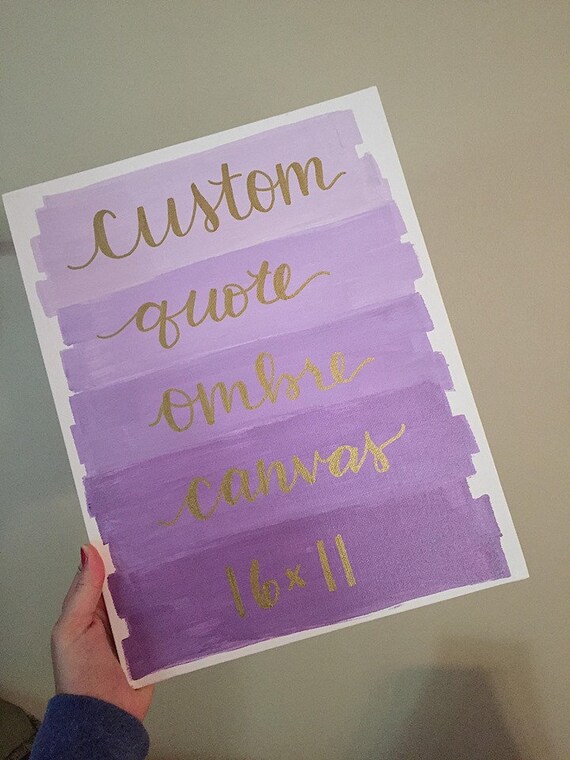 custom
quote
ombre
canvas
16x11